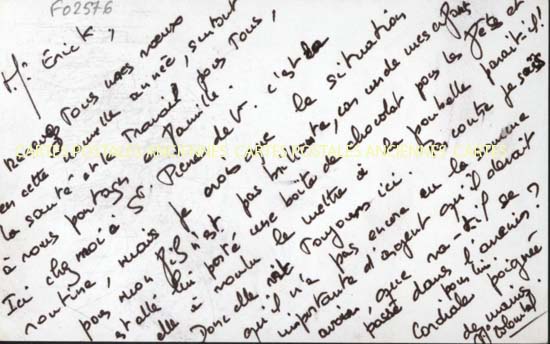 F02576
Mr Erick,
recevez Tous mes vœux
en cette nouvelle année, surtout
la santé et le Travail pour Tous,
à nous partager en famille.
Ici chez moi à G. Rien de v. c'est la
routine, mais je avais que la situation
pour mon fils n'est pas brillante, car une de mes enfants
est allé lui porté une boîte de chocolat pour les fêtes et
elle a voulu le mettre à la poubelle paraît-il!
Donc elle vit Toujours ici. conte je sais
qu'il n'a pas encore eu la somme
importante d'argent qu'il devrait
avoir, que va-t-il se
passé dans l'avenir?
pour lui.
Cordiale poignée
de mains.
CARTES POSTALES ANCIENNES CARTES POSTALES ANCIENNES CARTES